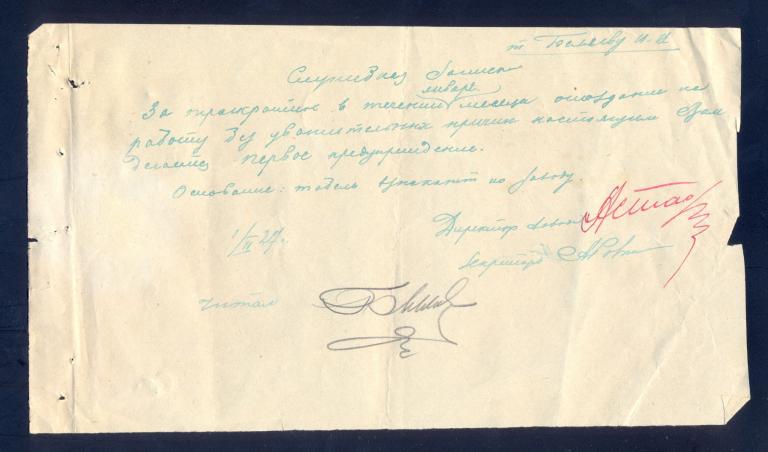 т. Беляеву И-И
Служебная записка
января
За троекратное в течении месяца опоздание на
работу без уважительных причин настоящим Вам
делается первое предупреждение.
Основание: табель по заводу.
Директор завода
1/II 27г.
секретарь
Читал